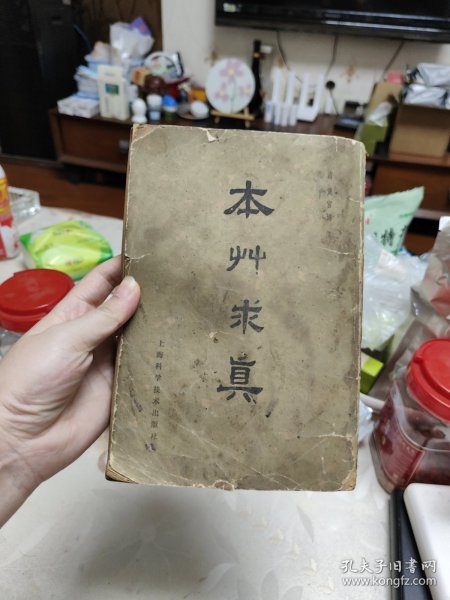 本艸求真
上海科学技术出版社
孔夫子旧书网
www.kongfz.com